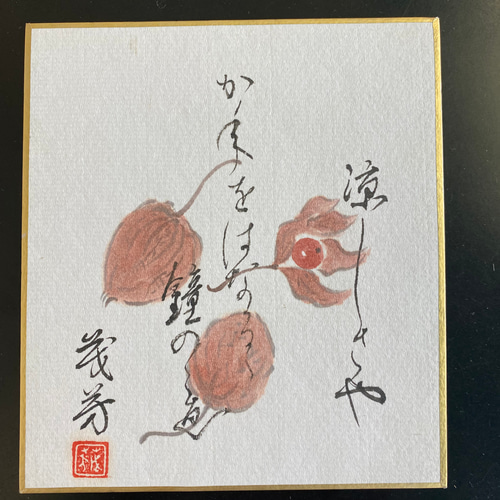 涼しさや
かねをはなるゝ
鐘の声
茂芳